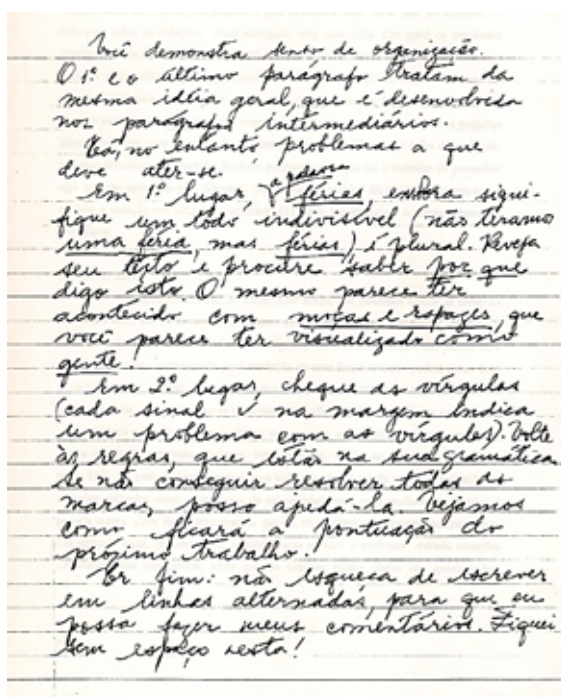 Você demonstra senso de organização.
O 1º e o último parágrafo tratam da
mesma idéia geral, que é desenvolvida
nos parágrafos intermediários.
Há, no entanto problemas a que
deve ater-se.
Em 1º lugar, a palavra férias, embora signi-
fique um todo indivisível (não tiramos
uma féria, mas férias) é plural. Reveja
seu texto e procure saber por que
digo isto. O mesmo parece ter
acontecido com moças e rapazes, que
você parece ter visualizado como
gente.
Em 2º lugar, cheque as vírgulas
(cada sinal v na margem indica
um problema com as vírgulas). Volte
às regras, que estão na sua gramática.
Se não conseguir resolver todas as
marcas, posso ajudá-la. Vejamos
como ficará a pontuação do
próximo trabalho.
Por fim: não esqueça de escrever
em linhas alternadas, para que eu
possa fazer meus comentários. Fiquei
sem espaço nesta!